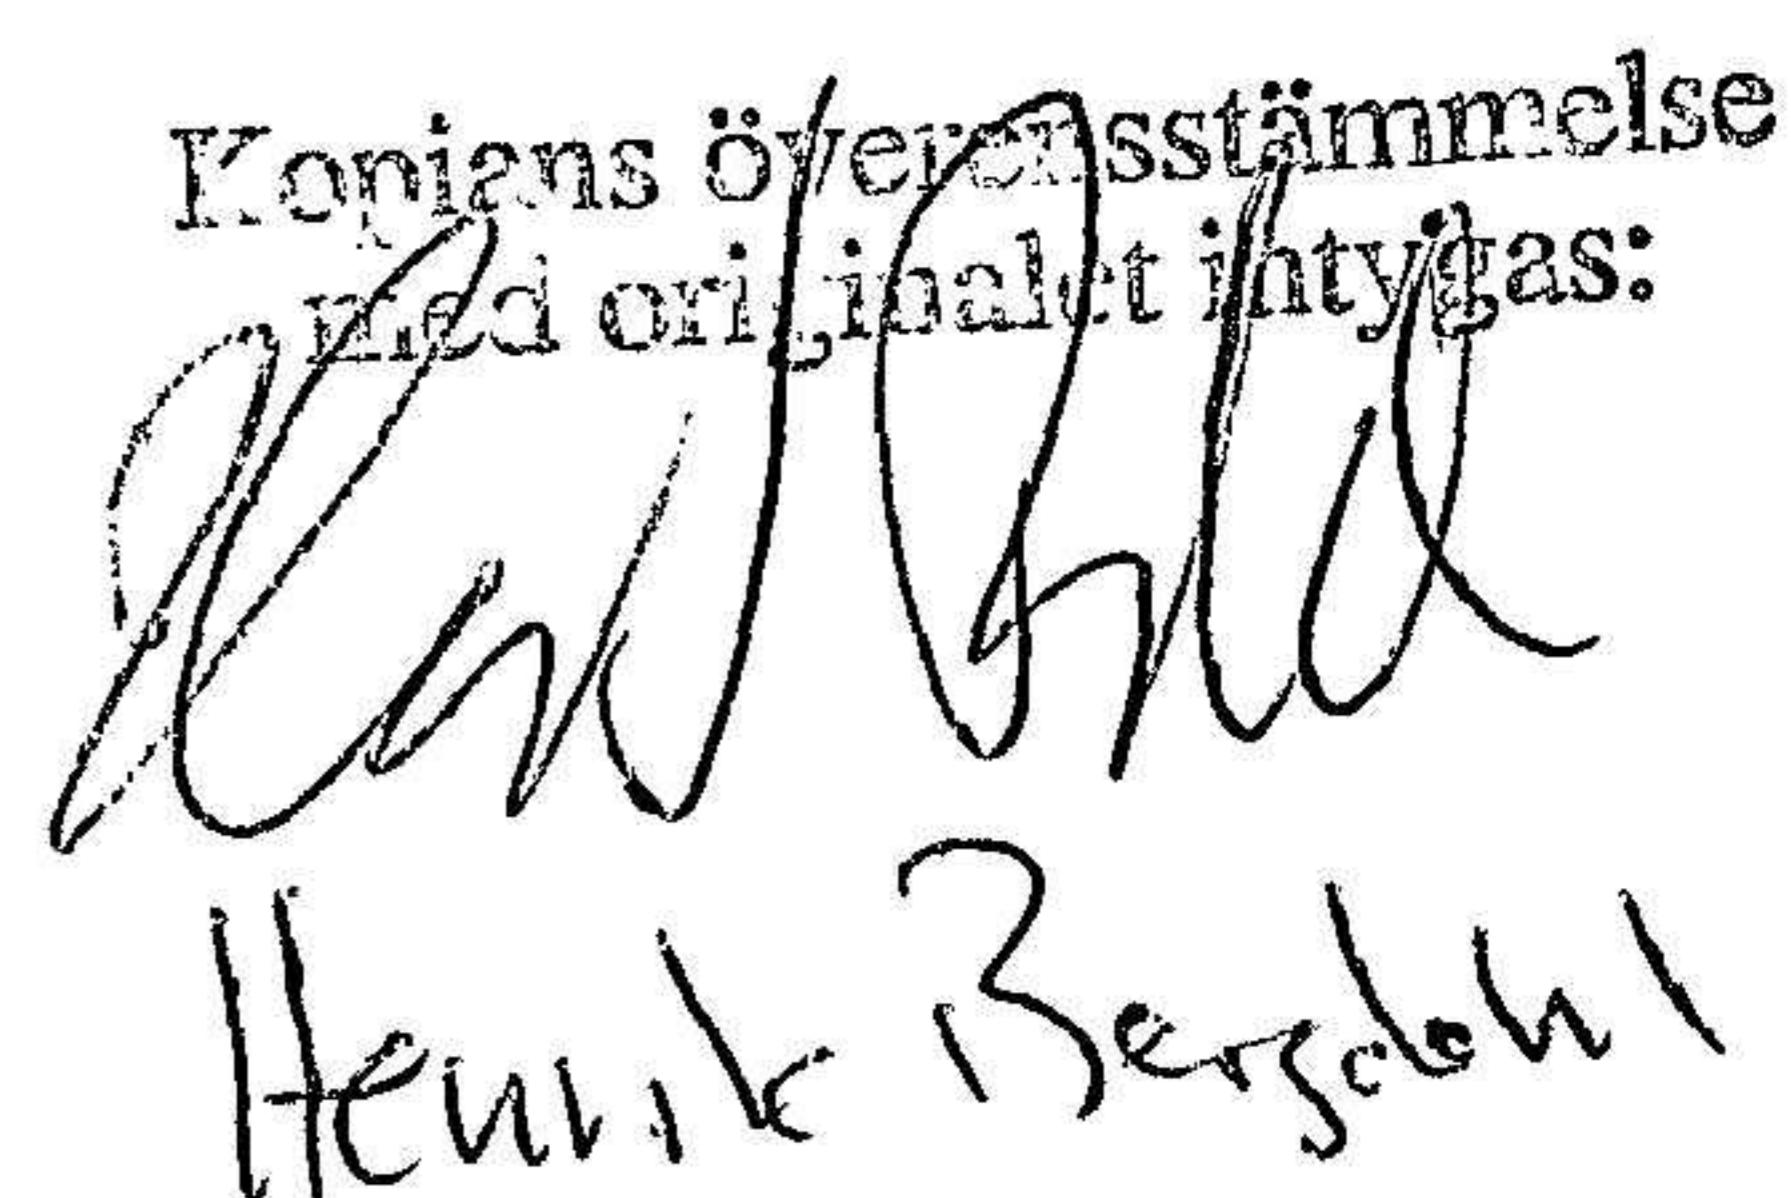 Kopians överensstämmelse
med originalet intygas:
Henrik Bergdahl